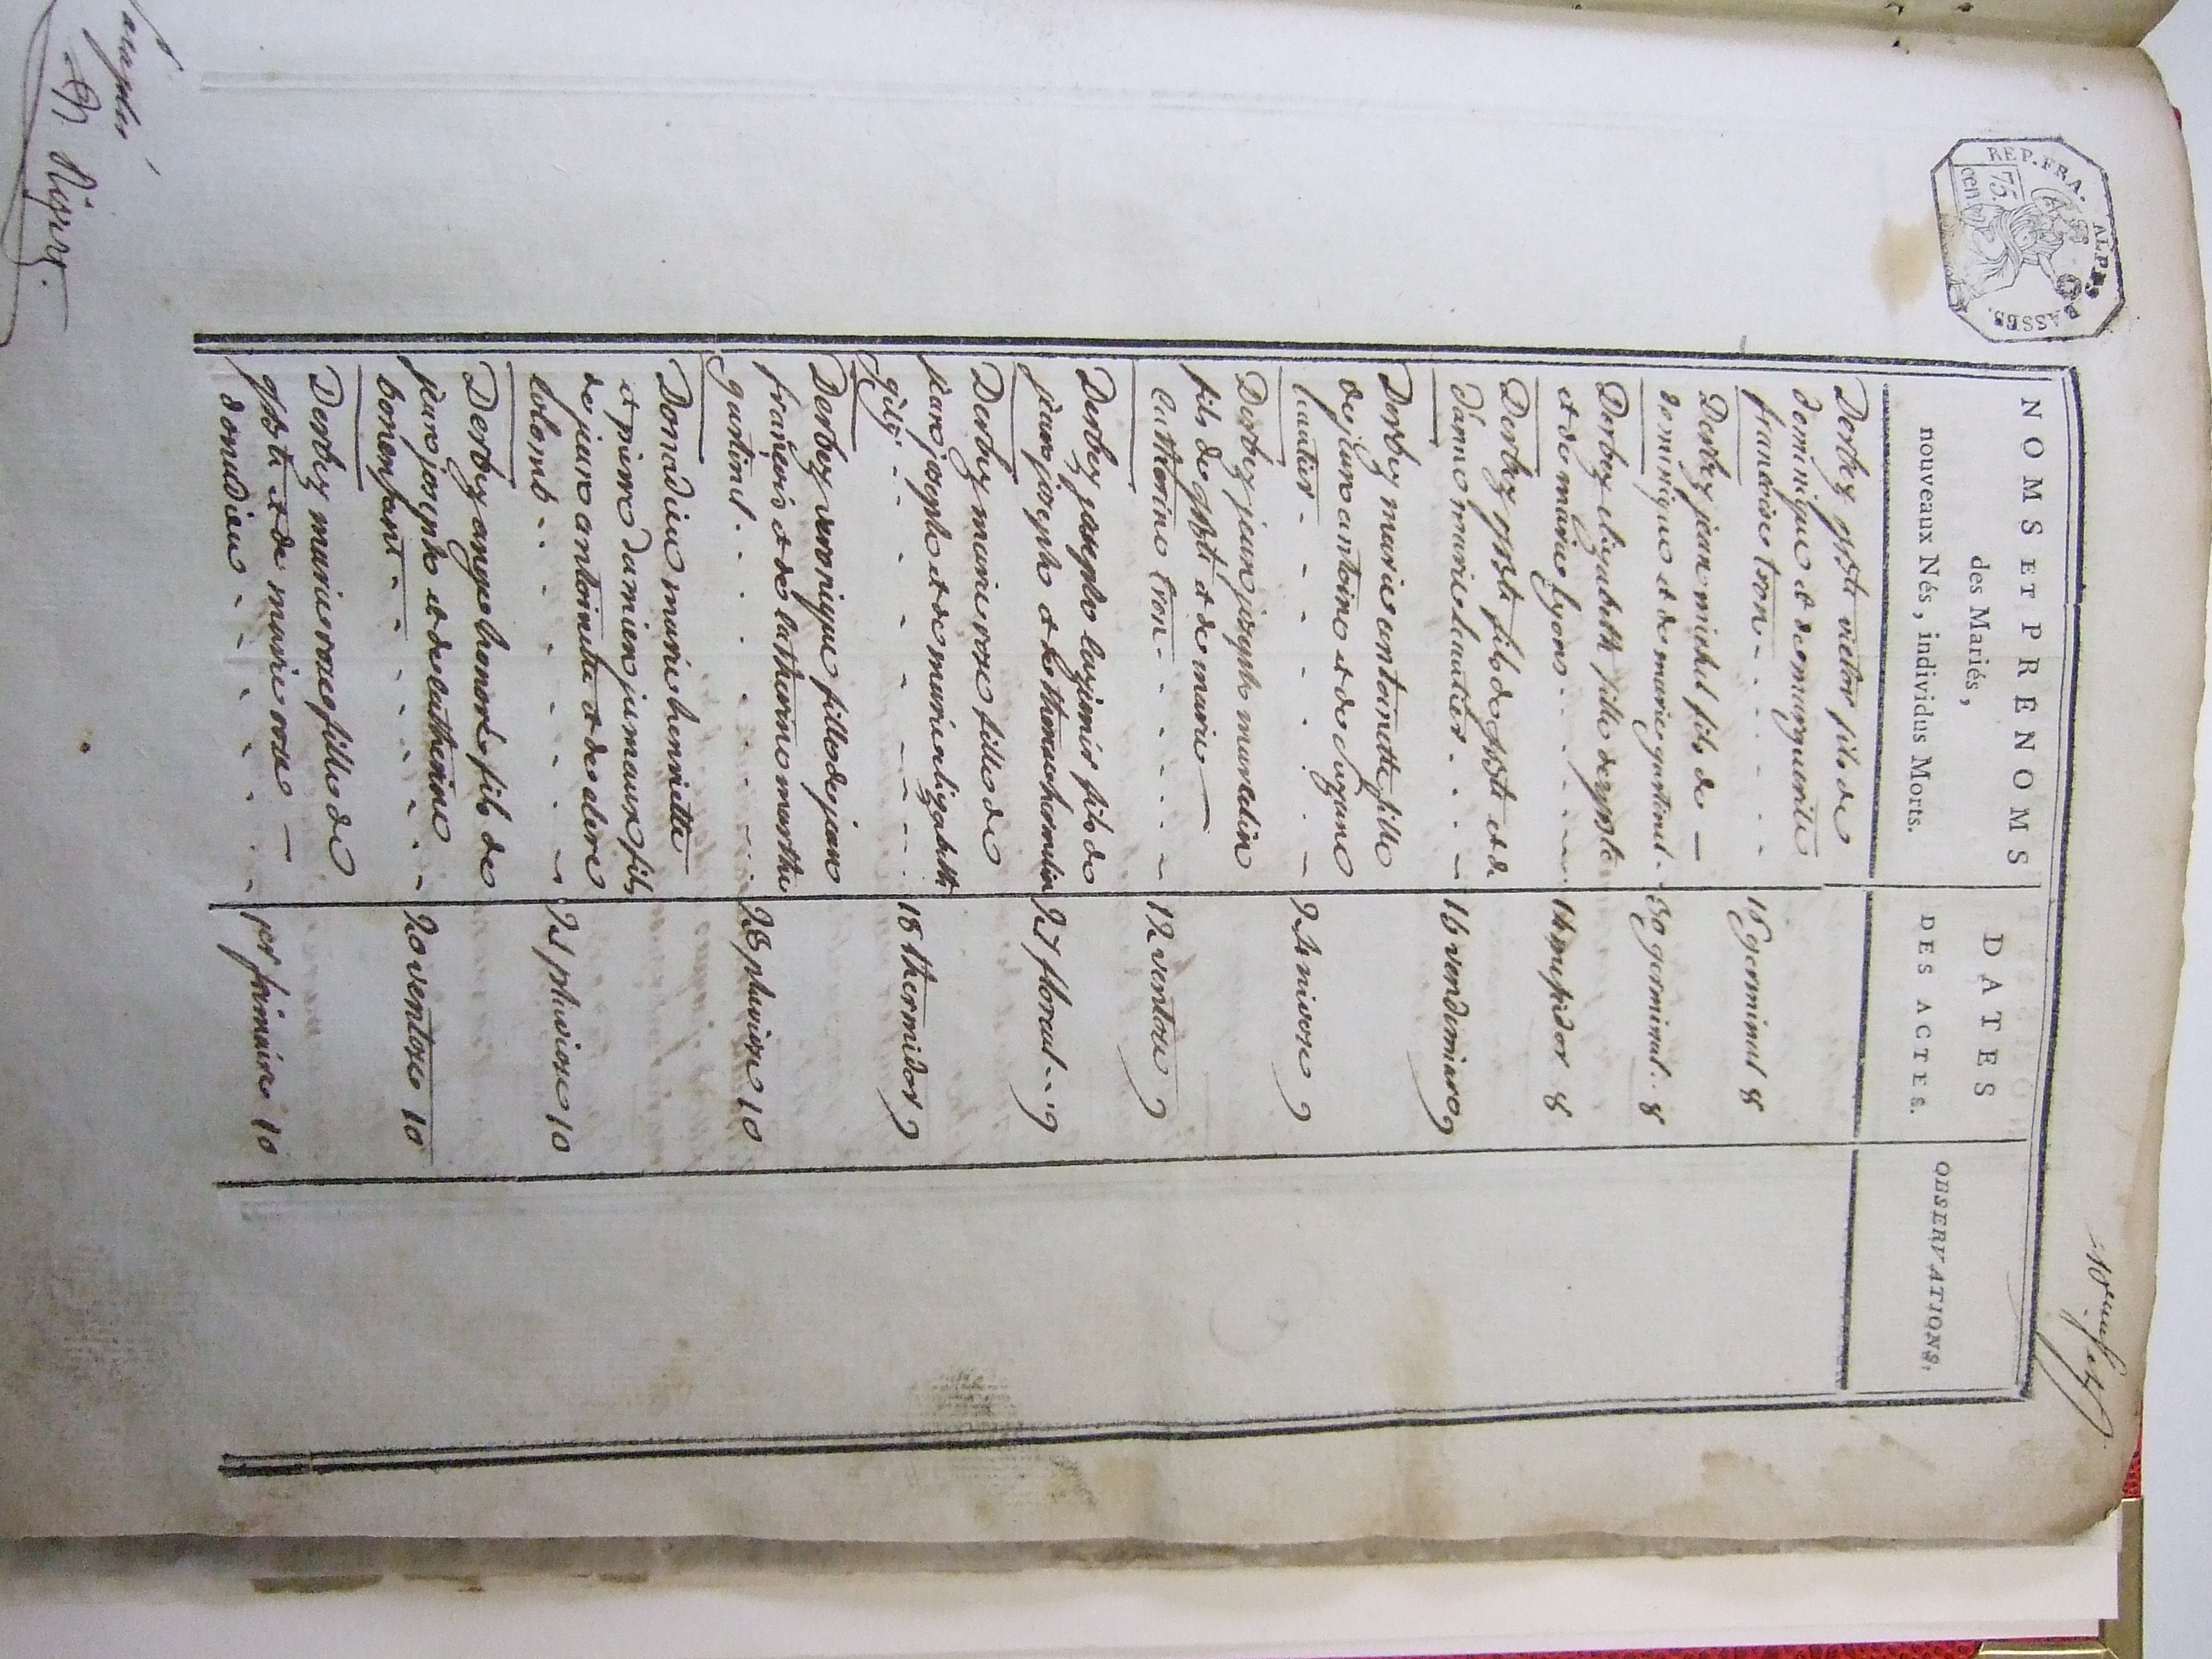 REP. FRA.
75
cen.
ALPES
BASSES.
NOMS ET PRENOMS
des Mariés,
nouveaux Nés, individus Morts.
DATES
DES ACTES.
OBSERVATIONS.
Derbez victor fils de
dominique et de marguerite
francoise tron - - - - 16 germinal 8
Derbez jean michel fils de —
dominique et de marie gastinel - 30 germinal . 8
Derbez elizabeth fille de
et de marie lyons - - - - 14 8
Derbez fils de et de
marie hautier - - - 16 vendemiaire 9
Derbez marie antoinette fille
de jean antoine et de suzane
hautier - - - - - 24 nivose 9
Derbez jean joseph marcelin
fils de et de marie —
catherine tron - - - - 12 ventose 9
Derbez joseph fils de
jean joseph et de 27 floreal - - 9
Derbez marie rose fille de
jean joseph et de marie elizabeth
gilly - - - - - 18 thermidor 9
Derbez veronique fille de jean
françois et de catherine marthe
gastinel - - - - - 28 pluviose 10
Donadieu marie henriette
et pierre damien jumeaux fils
de jean antoine et de claire
colomb - - - - - 21 pluviose 10
Derbez ange honoré fils de
jean joseph et de catherine
bonenfant - - - - - 20 ventose 10
Derbez marie rose fille de
et de marie rose —
donadieu - - - - - 1er frimaire 10